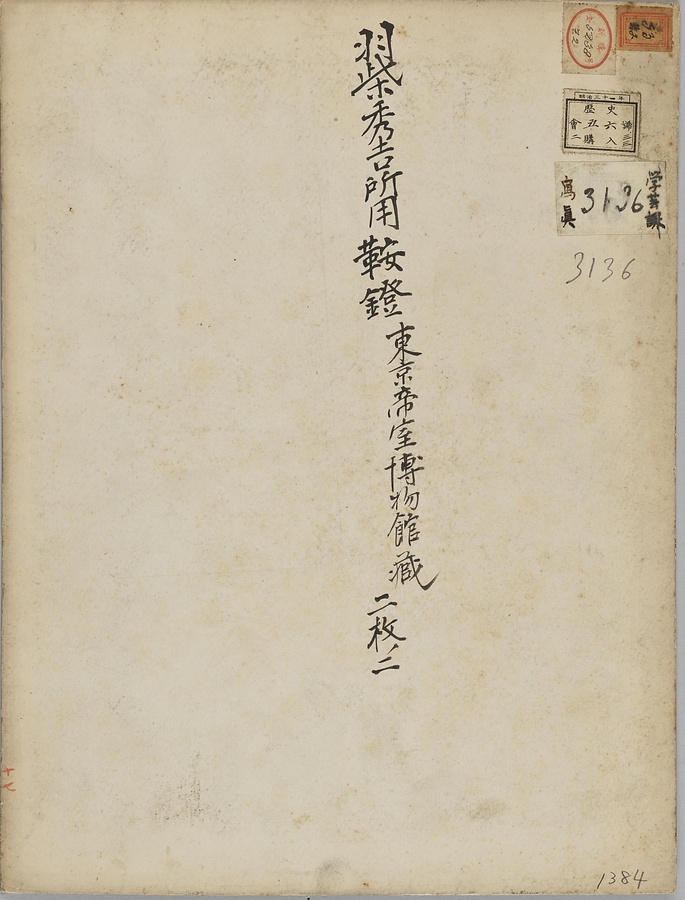 羽柴秀吉所用鞍鐙
東京帝室博物館藏
二枚ノ二
明治三十一年
史六入
歴丑購
會二
学芸課
3136
寫眞
3136
十七
1384